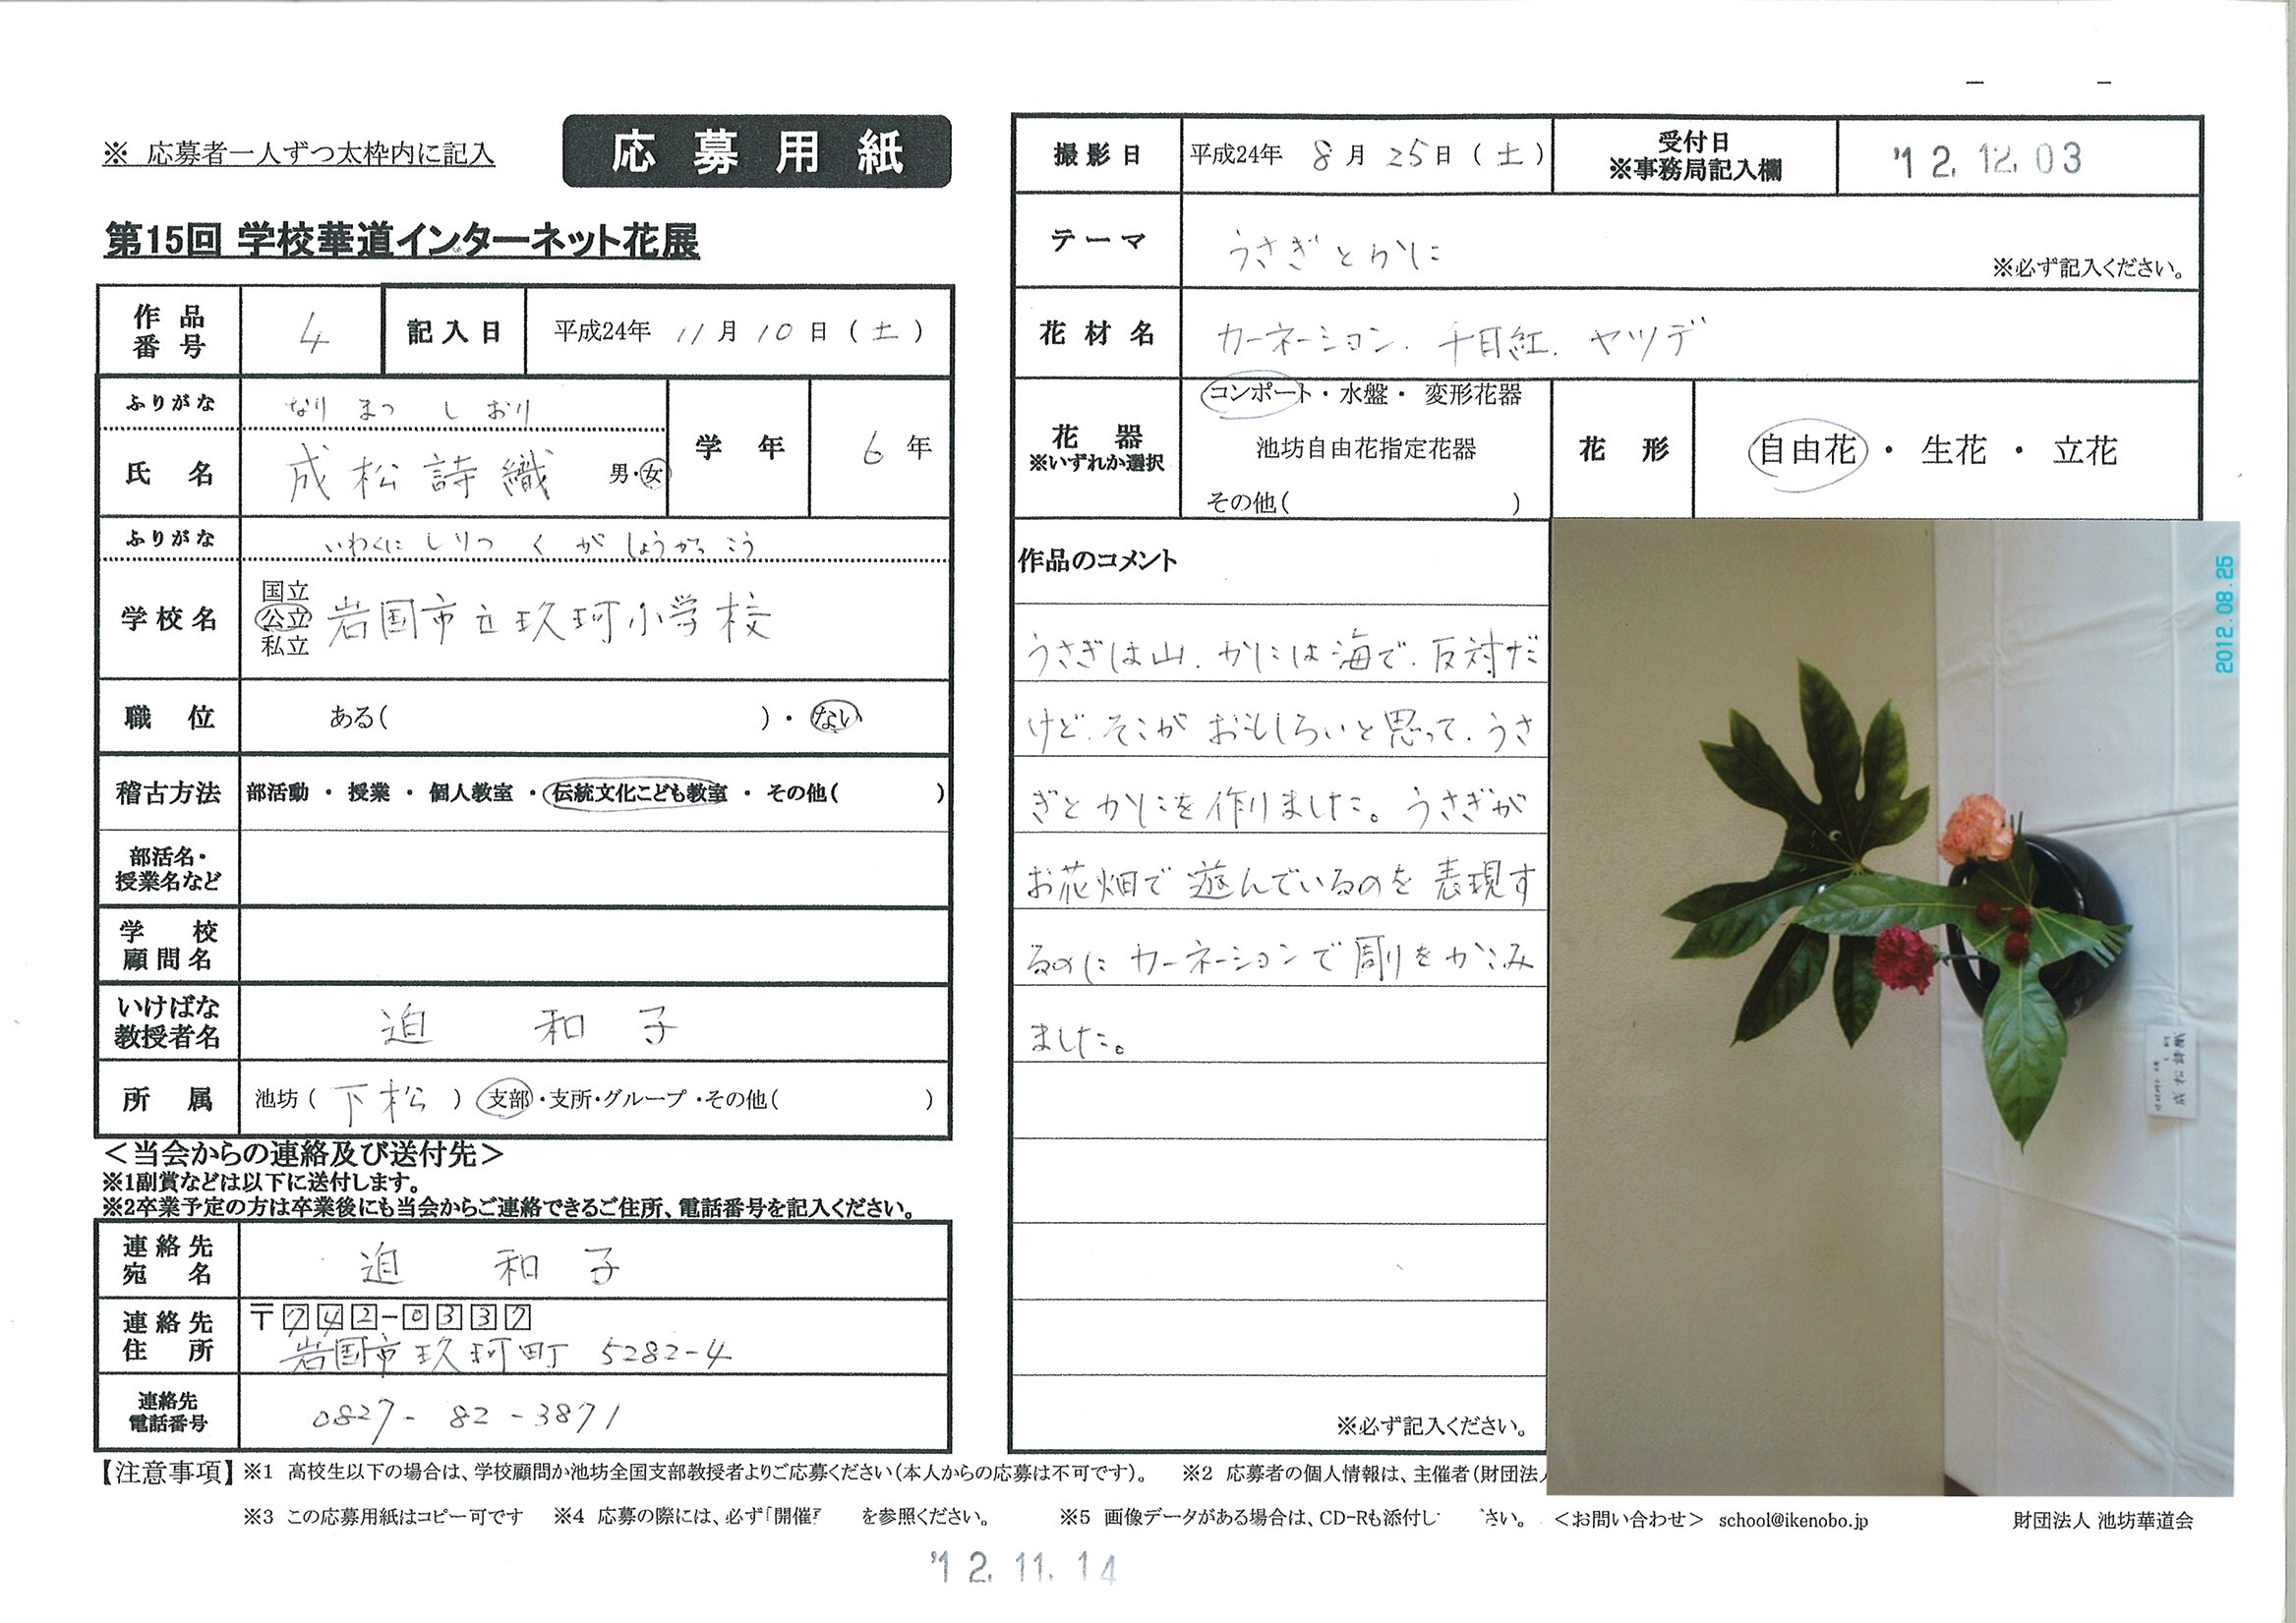 ※ 応募者一人ずつ太枠内に記入
応募用紙
第15回 学校華道インターネット花展
作品番号 4 記入日 平成24年 11月10日(土)
ふりがな なり まつ し おり
氏名 成松詩織 男・女 学年 6年
ふりがな いわくに しりつ く が しょうがっ こう
学校名 国立 公立 私立 岩国市立玖珂小学校
職位 ある( )・ない
稽古方法 部活動 ・ 授業 ・ 個人教室 ・ 伝統文化こども教室 ・ その他( )
部活名・授業名など
学校顧問名
いけばな教授者名 迫 和子
所属 池坊(下松) 支部・支所・グループ・その他( )
＜当会からの連絡及び送付先＞
※1副賞などは以下に送付します。
※2卒業予定の方は卒業後にも当会からご連絡できるご住所、電話番号を記入ください。
連絡先宛名 迫 和子
連絡先住所 〒742-0337
岩国市玖珂町 5282-4
連絡先電話番号 0827-82-3871
撮影日 平成24年 8月25日(土) 受付日 ※事務局記入欄 '12.12.03
テーマ うさぎとかに ※必ず記入ください。
花材名 カーネーション. 千日紅. ヤツデ
花器 ※いずれか選択 コンポート・水盤・変形花器
池坊自由花指定花器
その他( )
花形 自由花 ・ 生花 ・ 立花
作品のコメント
うさぎは山. かには海で. 反対だ
けど. そこが おもしろいと思って. うさ
ぎとかにを作りました。うさぎが
お花畑で遊んでいるのを表現す
るのに カーネーションで周りをかこみ
ました。
※必ず記入ください。
2012.08.25
成松詩織
【注意事項】※1 高校生以下の場合は、学校顧問か池坊全国支部教授者よりご応募ください(本人からの応募は不可です)。 ※2 応募者の個人情報は、主催者(財団法
※3 この応募用紙はコピー可です ※4 応募の際には、必ず「開催 を参照ください。 ※5 画像データがある場合は、CD-Rも添付し さい。 ＜お問い合わせ＞ school@ikenobo.jp 財団法人 池坊華道会
'12.11.14